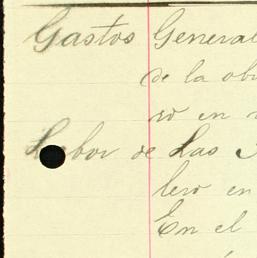 Gastos General
de la ob
ro en
Labor de Las
lero en
En el